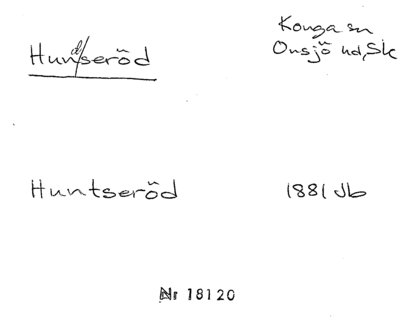 Hundseröd
Konga sn
Onsjö hd, Sk
Huntseröd
1881 Jb
Nr 18120